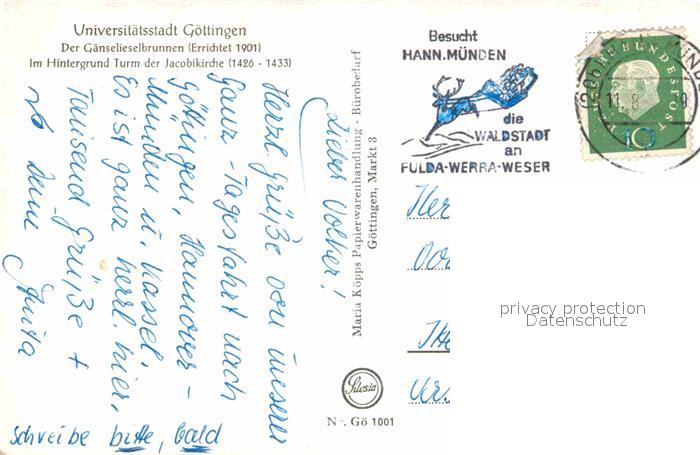 Universitätsstadt Göttingen
Der Gänselieselbrunnen (Errichtet 1901)
Im Hintergrund Turm der Jacobikirche (1426 - 1433)
Lieber Volker!
Herzl. Grüße von unserer
Ganz-Tagesfahrt nach
Göttingen, Hannover-
Münden u. Kassel.
Es ist ganz herrl. hier.
Tausend Grüße +
Deine Anita
schreibe bitte, bald
Maria Köpps Papierwarenhandlung - Bürobedarf
Göttingen, Markt 3
Silesia
Nr. Gö 1001
Besucht
HANN.MÜNDEN
die
WALDSTADT
an
FULDA-WERRA-WESER
DEUTSCHE BUNDESPOST
10
Her
privacy protection
Datenschutz